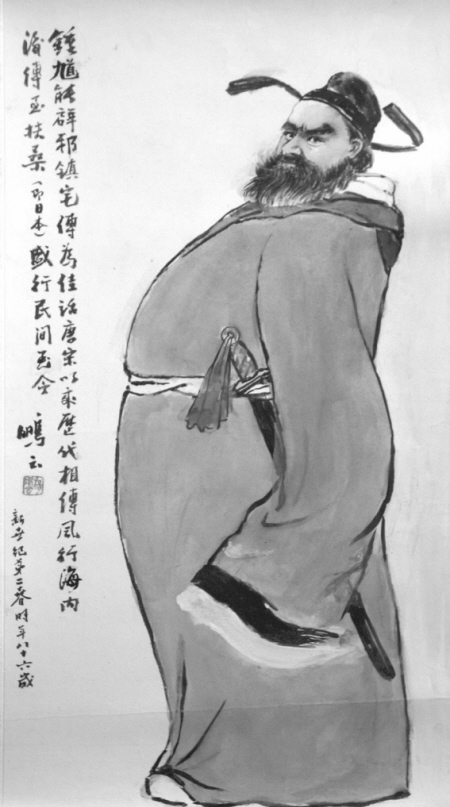 鍾馗能辟邪鎮宅傳為佳話唐宋以來歷代相傳風行海內
海傳至扶桑(即日本)盛行民間至今
鵬云
新世紀第二春時年八十六歲